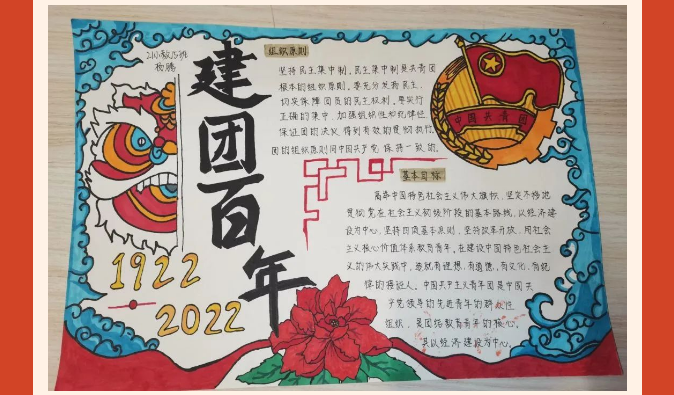 建团百年
1922
2022
组织原则
坚持民主集中制。民主集中制是共青团
根本的组织原则。要充分发扬民主,
切实保障团员的民主权利。要实行
正确的集中,加强组织性和纪律性
保证团的决议得到有效的贯彻执行
团的组织原则同中国共产党保持一致的。
中国共青团
基本目标
高举中国特色社会主义伟大旗帜,坚定不移地
贯彻党在社会主义初级阶段的基本路线,以经济建
设为中心,坚持四项基本原则,坚持改革开放,用社会
主义核心价值体系教育青年。在建设中国特色社会主
义的伟大实践中,造就有理想,有道德,有文化,有纪
的接班人。中国共产主义青年团是中国共
产党领导的先进青年的群众性
组织,是团结教育青年的核心。
是以经济建设为中心。